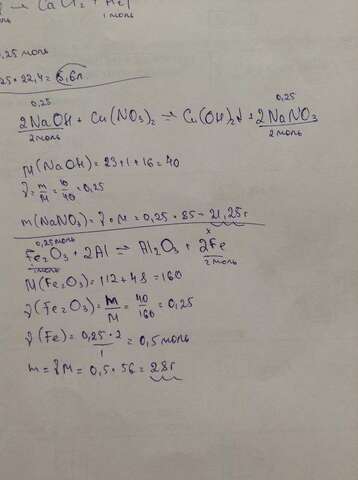 CaCl₂ + H₂↑
1 моль
0,25 моль
25 · 22,4 = 5,6л
0,25 0,25
2NaOH + Cu(NO₃)₂ ⇌ Cu(OH)₂↓ + 2NaNO₃
2 моль 2 моль
M(NaOH) = 23+1+16 = 40
γ = m/M = 10/40 = 0,25
m(NaNO₃) = γ · M = 0,25 · 85 = 21,25г
0,25 моль x
Fe₂O₃ + 2Al ⇌ Al₂O₃ + 2Fe
1моль 2 моль
M(Fe₂O₃) = 112 + 48 = 160
γ(Fe₂O₃) = m/M = 40/160 = 0,25
γ(Fe) = 0,25 · 2/1 = 0,5 моль
m = γM = 0,5 · 56 = 28г